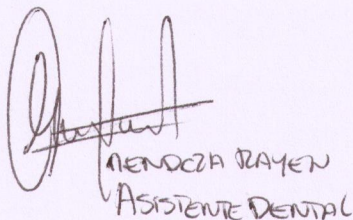 MENDOZA RAYEN
ASISTENTE DENTAL